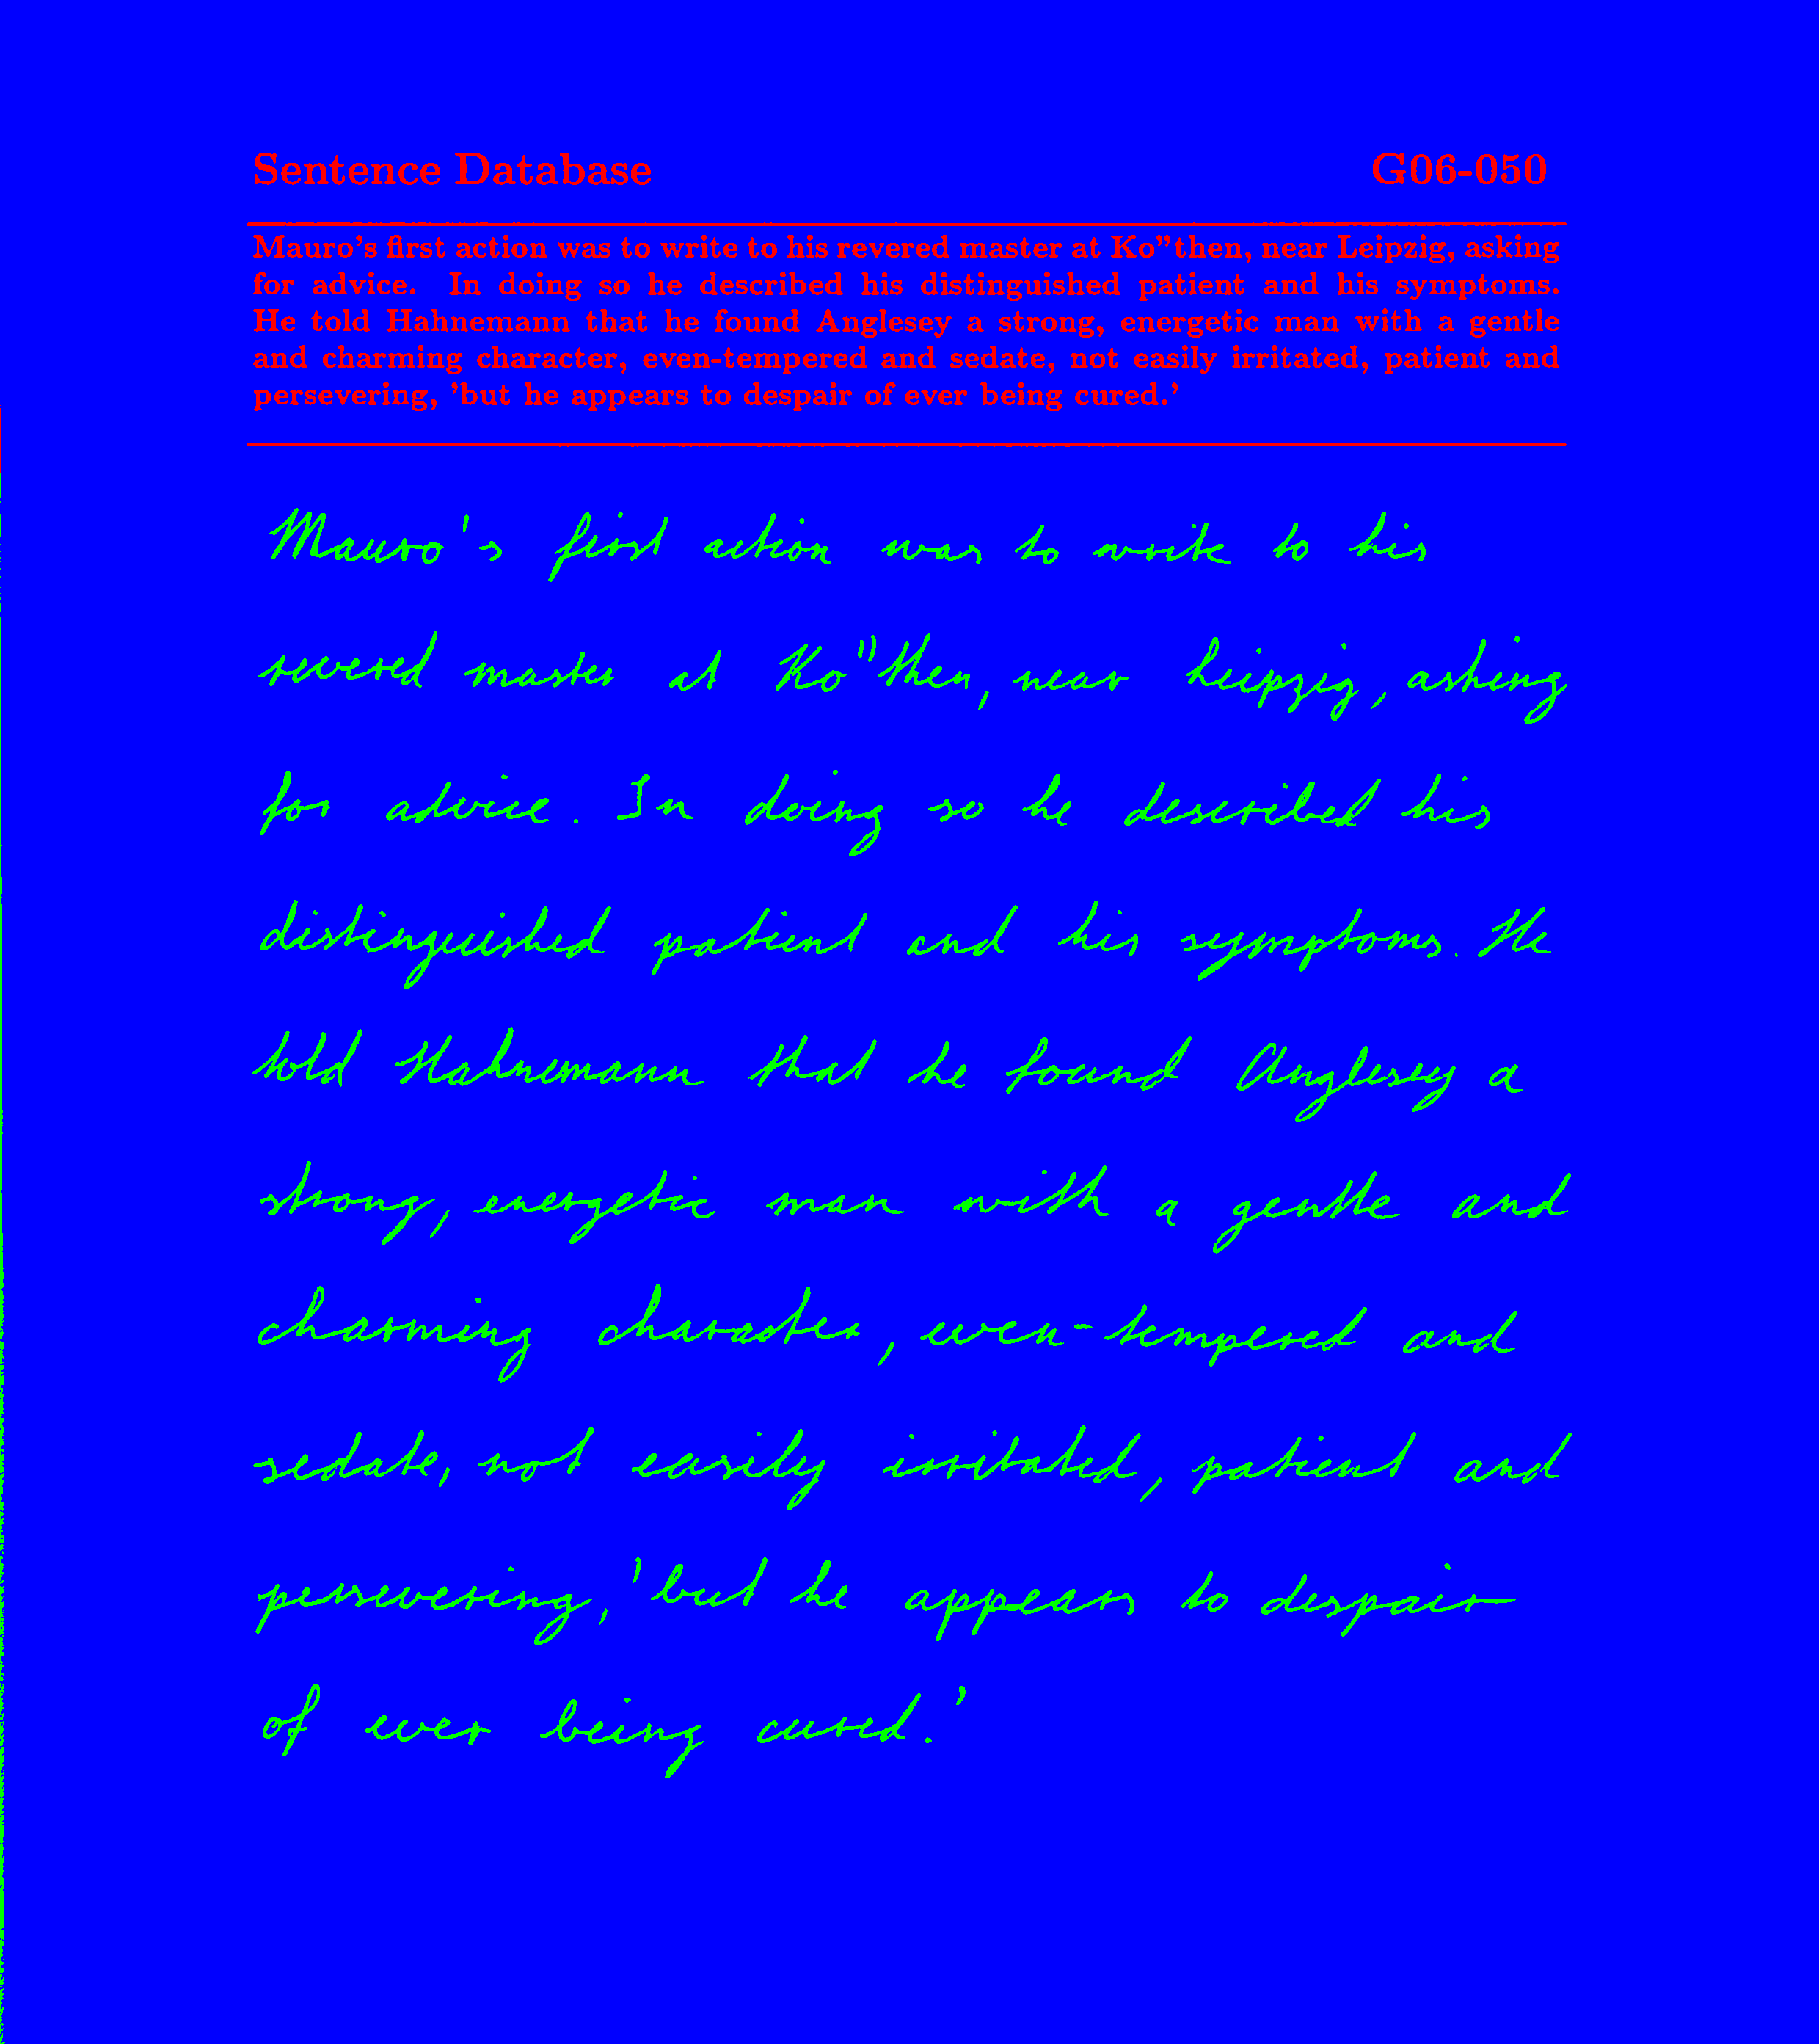 Sentence Database G06-050
Mauro's first action was to write to his revered master at Ko"then, near Leipzig, asking
for advice. In doing so he described his distinguished patient and his symptoms.
He told Hahnemann that he found Anglesey a strong, energetic man with a gentle
and charming character, even-tempered and sedate, not easily irritated, patient and
persevering, 'but he appears to despair of ever being cured.'
Mauro's first action was to write to his
revered master at Ko"then, near Leipzig, asking
for advice. In doing so he described his
distinguished patient and his symptoms. He
told Hahnemann that he found Anglesey a
strong, energetic man with a gentle and
charming character, even-tempered and
sedate, not easily irritated, patient and
persevering, 'but he appears to despair
of ever being cured.'